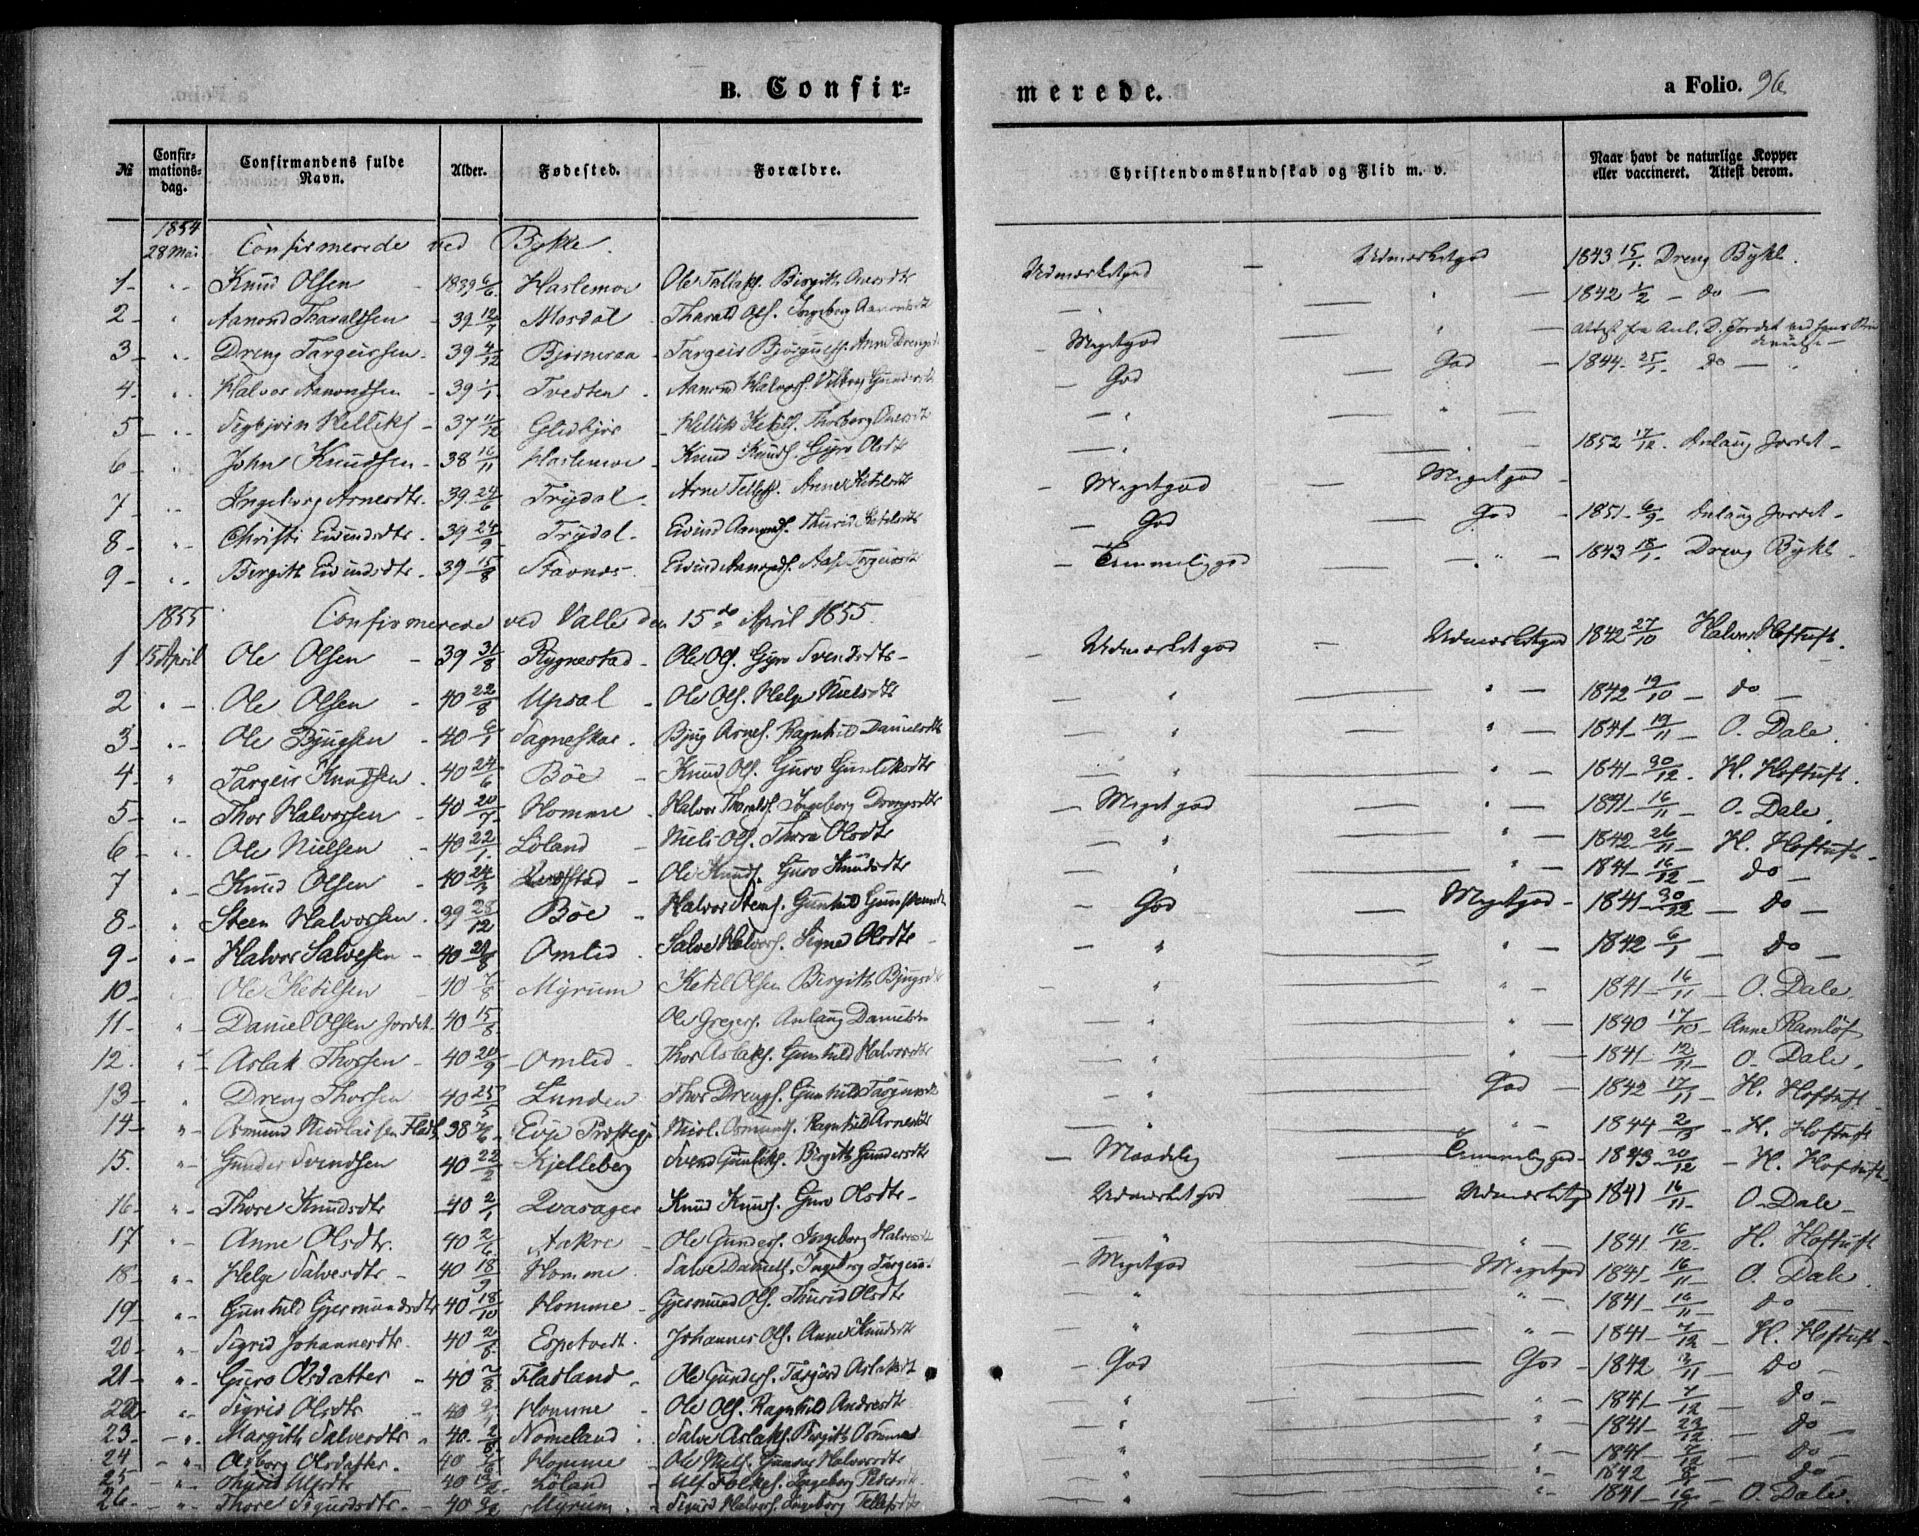 B. Confir-
merede.
a Folio. 96
№ Confir-mations-dag. Confirmandens fulde Navn. Alder. Fødested. Forældre. Christendomskundskab og Flid m. v. Naar havt de naturlige Kopper eller vaccineret. Attest derom.
1854
28 Mai. Confirmerede ved Bykle.
1 Knud Olsen 1839 6/6 Haslemoe Ole Tallaks. Birgith Anersdtr Udmærketgod Udmærketgod 1843 15/1. Dreng Bykl.
2 Aamond Tharaldsen 39 12/7 Mosdøl Tharald Ols. Ingeborg 1842 1/2 do
3 Dreng Targeirssen 39 4/12 Bjørneraa Targeir Anne Meget god Attest fra Anl. D. Jordet ved hans
4 Halvor Aamondssen 39 1/1 Tvedten Aamond Halvors. God God 1844 25/1 do
5 Helliks 37 Hellik Ketils. Thorberg
6 John Knudssen 38 16/11 Haslemoe Knud Knuds. Gyro Olsdtr 1852 17/12. Anlaug Jordet
7 Ingeborg Arnesdtr. 39 24/6 Trydal Arne Anne Ketilsdtr Megetgod Megetgod
8 Christi Eivindsdtr 39 24/9 Trydal Eivind Aamonds. Thurid Ketilsdtr God God 1851 6/9 Anlaug Jordet
9 Birgith Eivindsdtr. 39 15/8 Stavnes Eivind Aamonds. Temmeliggod 1843 18/1 Dreng Bykl.
1855 Confirmerede ved Valle den 15de April 1855.
1 15 April Ole Olsen 39 31/8 Rygnestad Ole Ols. Gyro Svendsdtr Udmærketgod Udmærketgod 1842 27/10 Halvor Hoftuft.
2 Ole Olsen 40 22/8 Upsal Ole Ols. Helge Nielsdtr 1842 19/10 do
3 Ole Bjugsen 40 6/1 Tagneskar. Bjug Arnes. Ragnhild Danielsdtr 1841 19/11 O. Dale.
4 Targeir Knudsen 40 24/6 Bøe Knud Ols. Guro Gunleiksdtr 1841 30/12. H. Hoftuft.
5 Thor Halvorsen 40 20/7 Homme Halvor Tharalds. Ingeborg Drengsdtr Megetgod 1841 16/11 O. Dale.
6 Ole Nielsen 40 22/1. Løland Niels Ols. Thora Olsdtr 1842 26/11 H. Hoftuft
7 Knud Olsen 40 24/3 Ole Knuds. Guro Knudsdtr 1841 16/12 do
8 Steen Halvorsen 39 28/12 Bøe Halvor Steens. Gunhild God Megetgod 1841 30/12 do
9 Halvor Salvesen 40 28/8 Omlid Salve Halvors. Signe Olsdtr 1842 6/1 do
10 Ole Ketilsen 40 7/8 Myrum Ketil Olsen Birgith Bjugsdtr 1841 16/11 O. Dale.
11 Daniel Olsen Jordet 40 15/8 Ole Gregers. Anlaug Danielsdtr 1840 17/10 Anne Ramløf
12. Aslak Thorsen 40 20/9 Omlid Thor Aslaks. Gunhild Halvorsdtr 1841 12/11 O. Dale.
13 Dreng Thorsen 40 25/5 Lunden Thor Drengs. Gunhild God 1842 17/11 H. Hoftuft
14 Osmund Nicolaisen 38 Evje Præsteg. Nicol. Osmunds. Ragnhild Arnesdtr 1844 H. Hoftuft
15. Gunder Svendsen 40 22/2 Kjelleberg Svend Gunleiks. Birgith Gundersdtr Maadelig Temmeliggod 1843 20/12 H. Hoftuft
16 Thore Knudsdtr 40 2/1 Qvasager Knud Knuds. Guro Olsdtr Udmærketgod Udmærketgd 1841 16/11 O. Dale
17 Anne Olsdtr. 40 2/6 Aakre Ole Gunders. Ingeborg Halvorsdtr 1841 16/12. H. Hoftuft
18 Helge Salvesdtr 40 18/9 Homme Salve Daniels. Ingeborg Megetgod Megetgod 1841 16/11 O. Dale
19 Gunhild Gjermundsdtr 40 18/10 Homme Gjermund Ols. Thurid Olsdtr 1841 16/11 do
20 Sigrid Johannesdtr. 40 2/8 Espetvedt. Johannes Ols. Anne Knudsdtr 1841 7/12 H. Hoftuft
21 Guro Olsdatter 40 7/8 Fladland Ole Gunders. Targjærd Aslaksdt God God 1842 do
22 Sigrid Olsdtr 40 Homme Ole Ols. Ragnhild Andresdtr 1841 7/12 do
23. Margith Salvesdtr 40 2/8 Nomeland Salve Aslaks. Birgith 1841 23/12 do
24 Aasborg Olsdatter. 40 Homme Ole Niels. Gunvor Halvorsdtr 1841 7/12 do
25 Sigrid Ulfsdtr 40 Løland Ulf Ingeborg 1842 do
26 Thore Sigurdsdtr. 40 Myrum Sigurd Halvors. Ingeborg Tellefsdtr 1841 16 O. Dale.